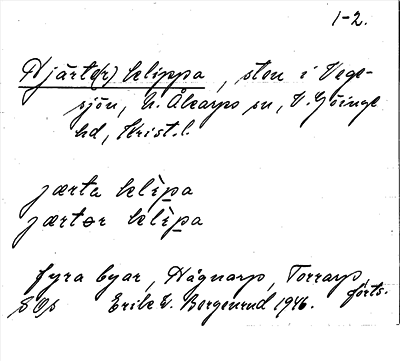 1-2.
Hjärt(er)klippa, sten i Vege-
sjön, N. Åkarps sn, V. Göinge
hd, Krist. l.
jærta klìpa
jærtər klìpa
fyra byar, Hågnarp, Torrarp,
förts.
SOs Erik W. Bergenrud 1946.